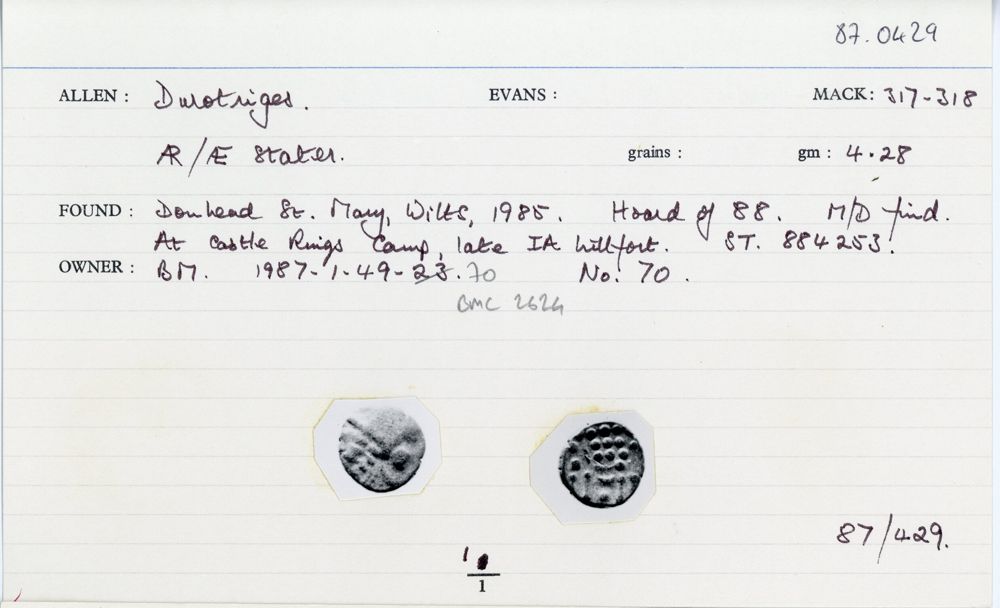 87.0429
ALLEN : Durotriges. EVANS : MACK: 317-318
ÆR/Æ Stater. grains : gm : 4.28
FOUND : Donhead St. Mary, Wilts, 1985. Hoard of 88. M/D find.
At Castle Rings Camp, late IA hillfort. ST. 884253.
OWNER : BM. 1987-1-49-23.70 No. 70.
BMC 2624
87/429.
1
1